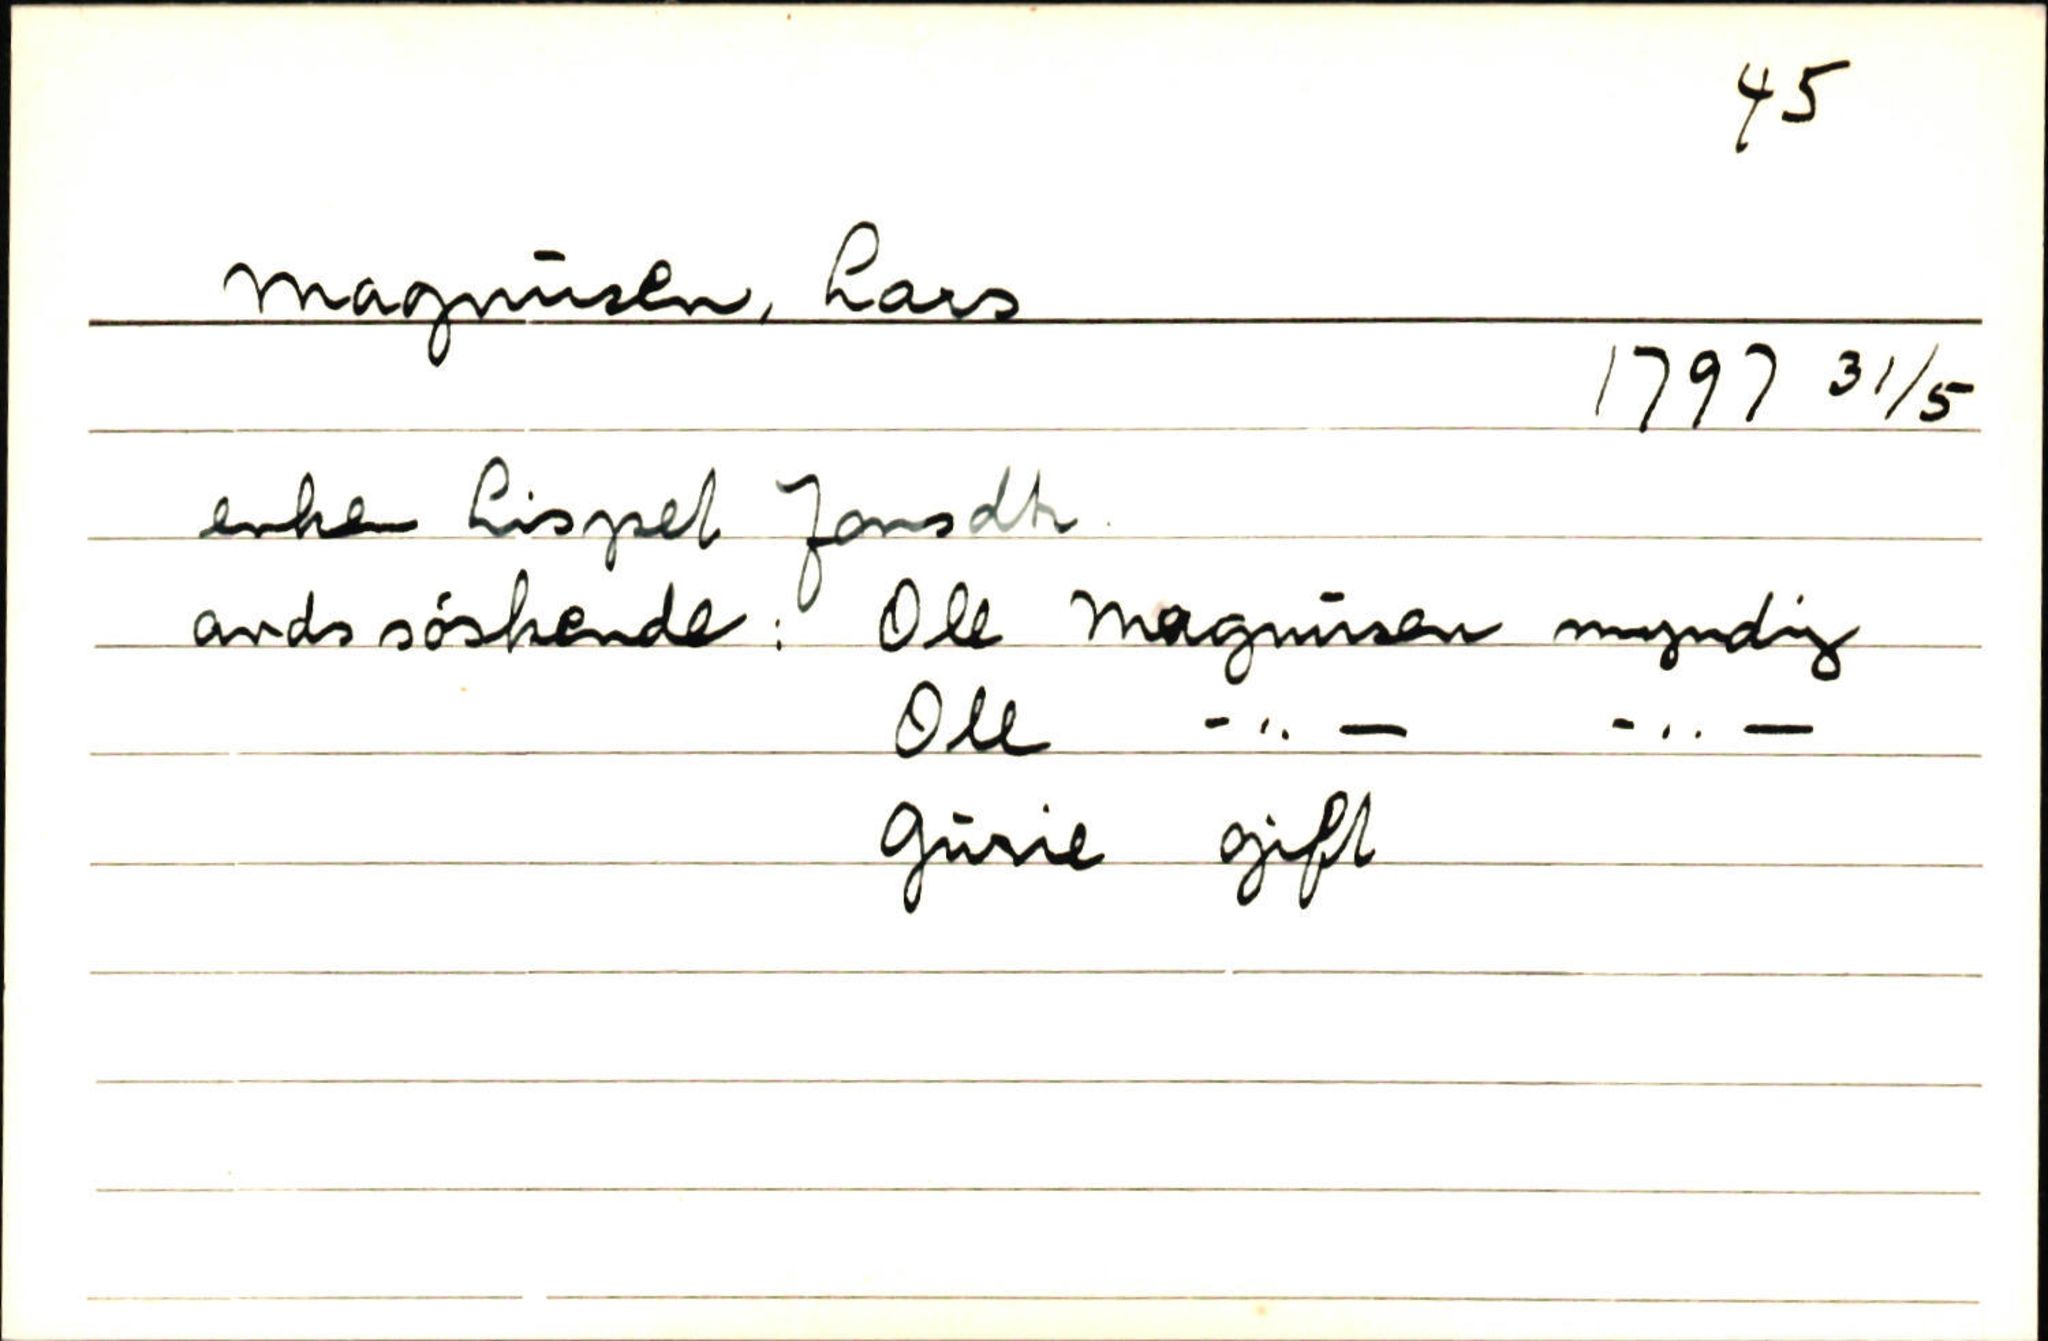 45
Magnusen, Lars
1797 31/5
enken Lispet Jonsdtr.
avds søskende: Ole Magnusen myndig
Ole -"- -"-
Gurie gift